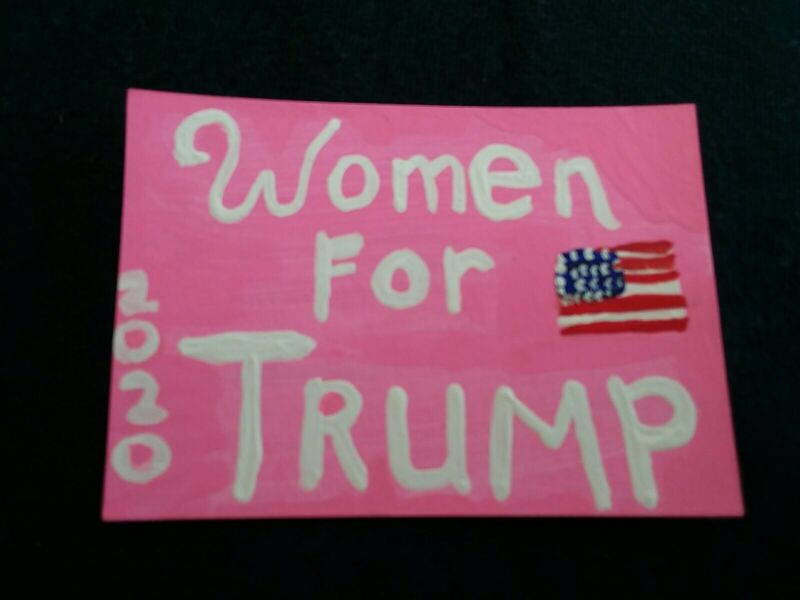 Women
For
TRUMP
2020